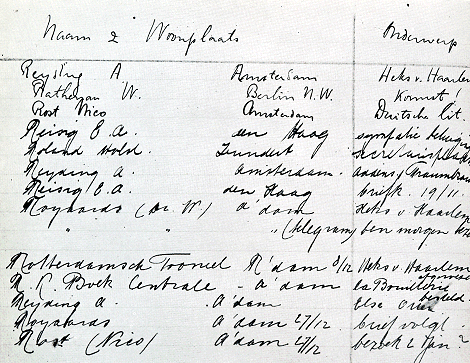 Naam & Woonplaats Onderwerp
Reyding A Amsterdam Heks v. Haarlem
Rathenau W. Berlin N.W. Komst!
Rost Nico Amsterdam Deutsche lit.
Reisig C. A. den Haag sympathie
Roland Holst Zundert
Reyding A. Amsterdam.
Reisig C.A. den Haag briefk. 19/11.
Royaards (Dr. W.) A'dam Heks v Haarlem
" " (telegram) ben morgen
Rotterdamsch Tooneel R'dam 8/12 Heks v. Haarlem
R. K. Boek Centrale - A'dam
Reyding A. A'dam Else
Royaards A'dam 27/12. brief volgt -
Rost (Nico) A'dam 28/12 bezoek 2 Jan.?